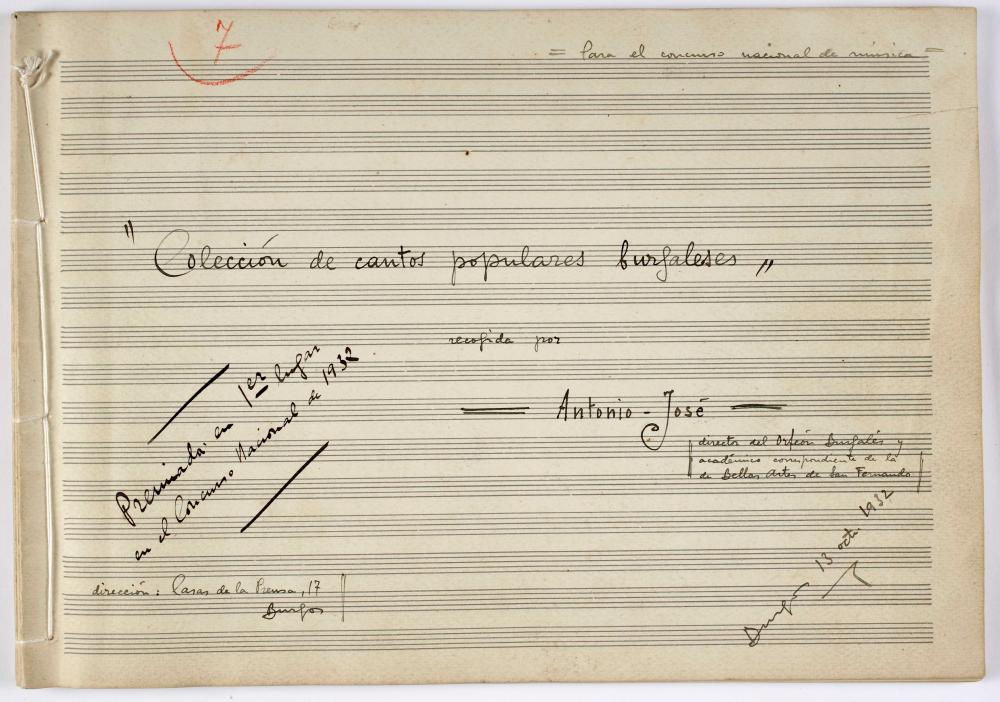 7
= Para el concurso nacional de música =
" Colección de cantos populares burgaleses "
recogida por
Antonio-José
director del Orfeón Burgalés y
académico correspondiente de la
de Bellas Artes de San Fernando
Premiada: en 1er lugar
en el Concurso Nacional de 1932
dirección: Casas de la Prensa, 17
Burgos
Burgos 13 octe. 1932